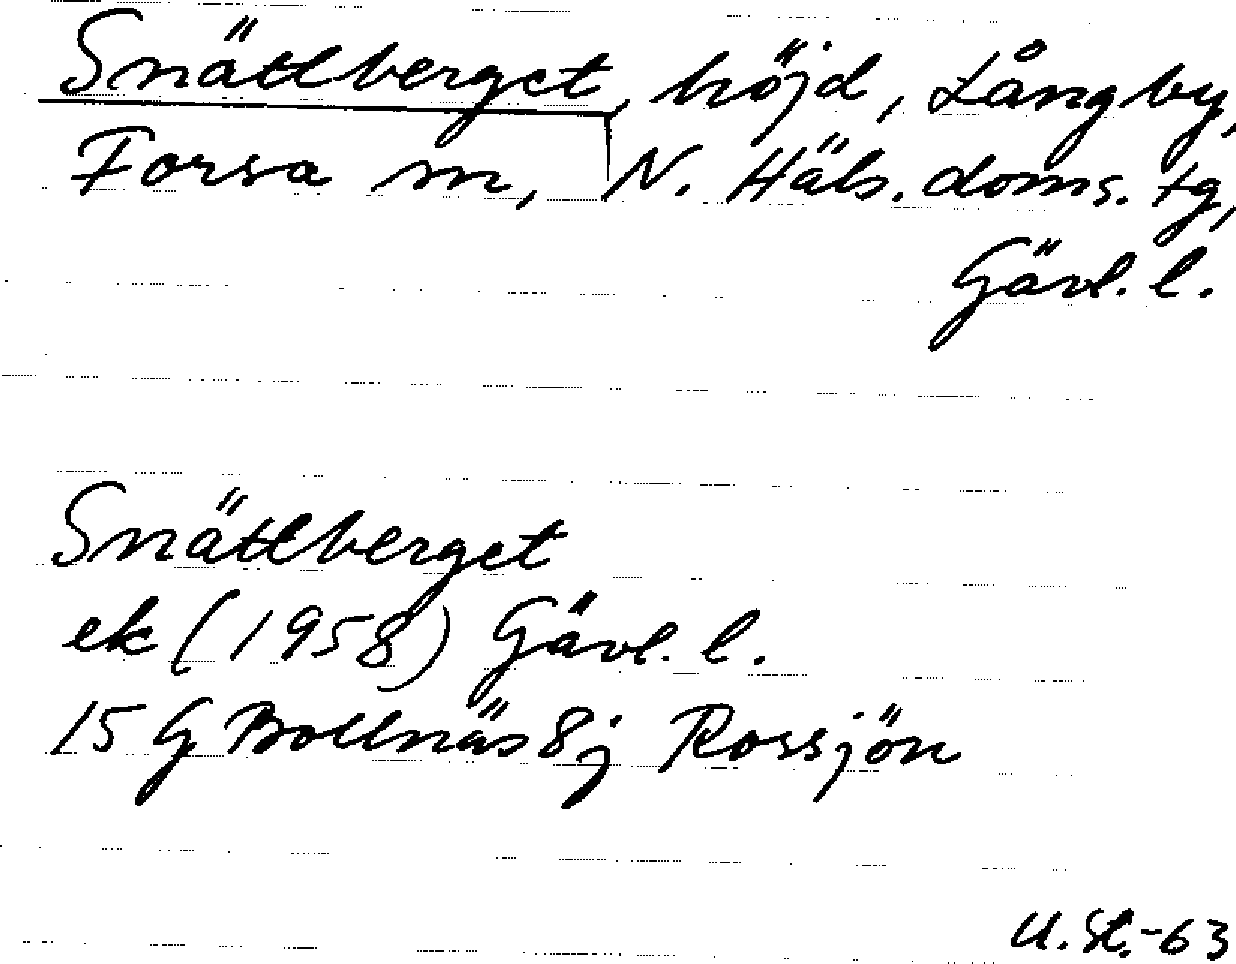 Snättberget, höjd, Långby,
Forsa sn, N. Häls. doms. tg,
Gävl. l.
Snättberget
ek (1958) Gävl. l.
15 G Bollnäs 8j Rossjön
U. St.-63